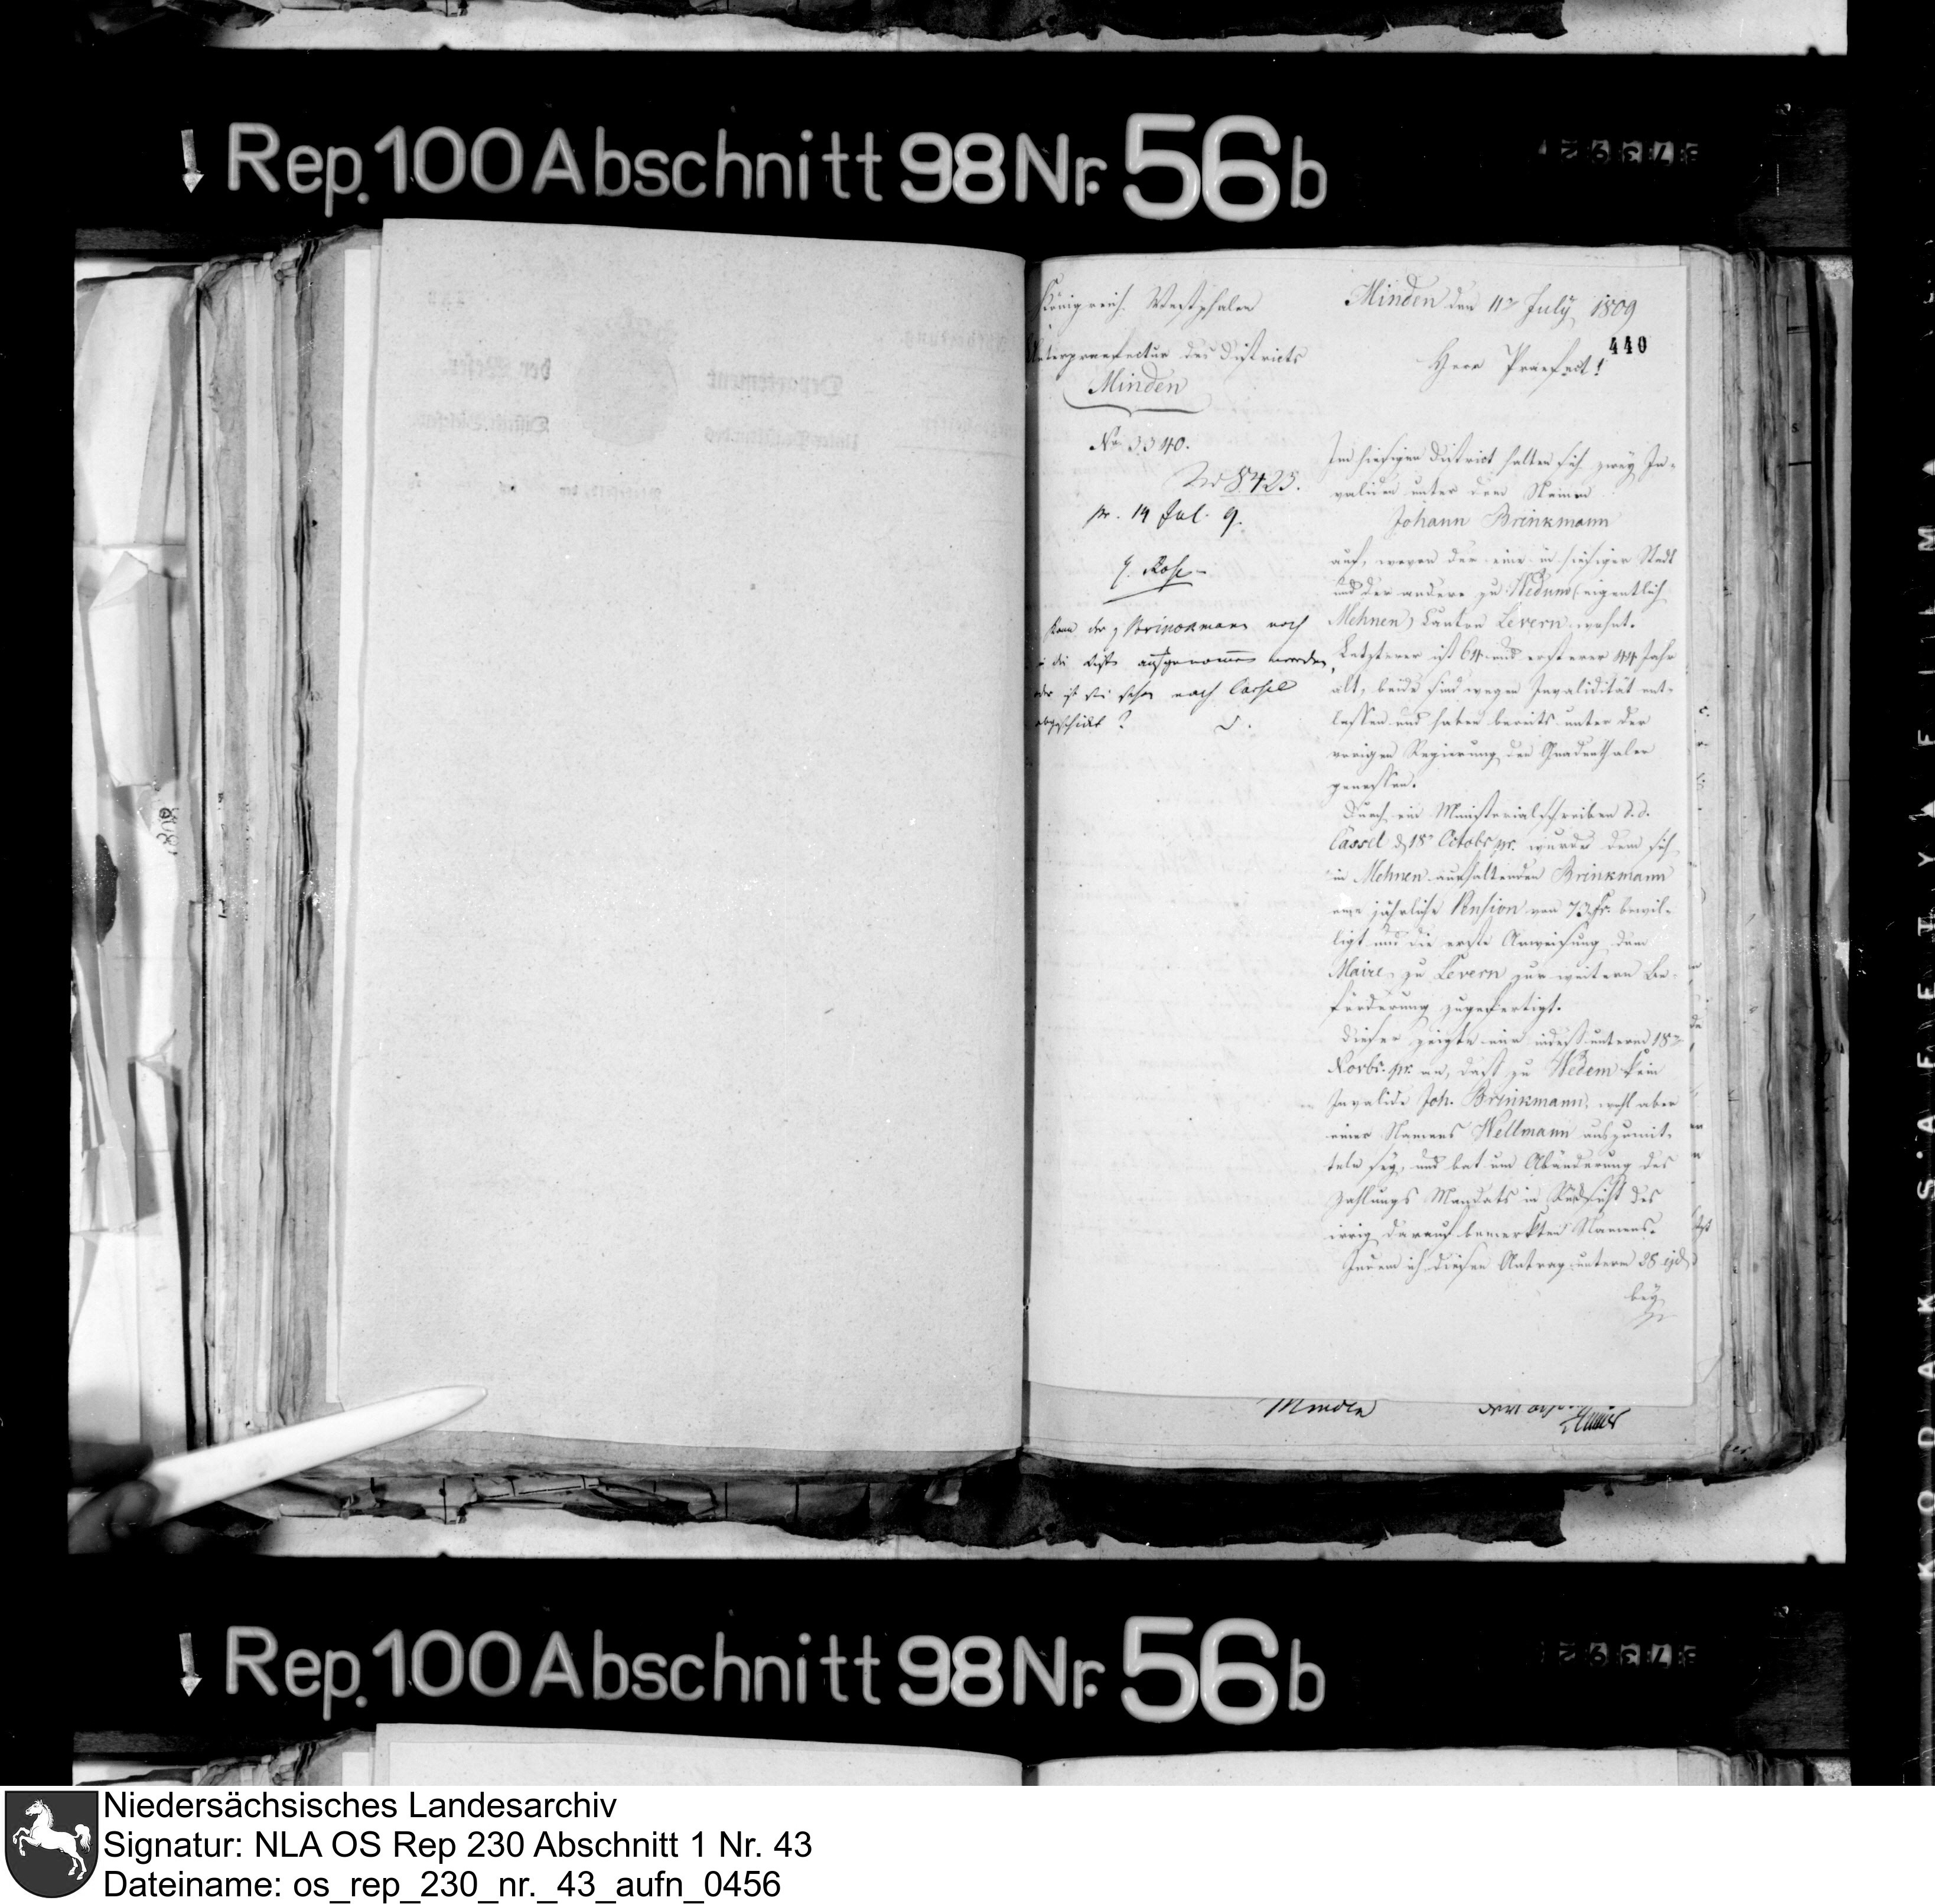 Rep. 100 Abschnitt 98 Nr. 56 b
Königreich Westphalen
Unterpraefectur des Districts
Minden
No 3340.
No 8425.
pr. 14 Jul. 9.
Kann der p Brinckmann noch
in die Liste aufgenommen werden,
oder ist sie schon nach Cassel
abgeschickt?
Minden den 11n July 1809
440
Herr Praefect!
Im hiesigen District halten sich zwey In-
validen unter dem Namen
Johann Brinkmann
auf, wovon der eine in hiesiger Stadt
und der andere zu Wedum (eigentlich
Mehnen) Canton Levern wohnt.
Letzterer ist 64 und ersterer 44 Jahr
alt, beide sind wegen Invalidität ent-
lassen und haben bereits unter der
vorigen Regierung den Gnadenthaler
genossen.
Durch ein Ministerialschreiben d. d.
Cassel d 18n Octobr pr. wurde dem sich
in Mehnen aufhaltenden Brinkmann
eine jährliche Pension von 73 fr. bewil-
ligt und die erste Anweisung dem
Maire zu Levern zur weitern Be-
förderung zugefertigt.
Dieser zeigte mir indeß unterm 18n
Novbr. pr. an, daß zu Wedem kein
Invalide Joh. Brinkmann, wohl aber
einer Namens Wellmann auszumit-
teln sey, und bat um Abänderung des
Zahlungs Mandats in Rücksicht des
irrig darauf bemerkten Namens.
Indem ich diesen Antrag unterm 28 ejd.
bey
Minden
Rep. 100 Abschnitt 98 Nr. 56 b
KODAK SAFETY FILM
Niedersächsisches Landesarchiv
Signatur: NLA OS Rep 230 Abschnitt 1 Nr. 43
Dateiname: os_rep_230_nr._43_aufn_0456